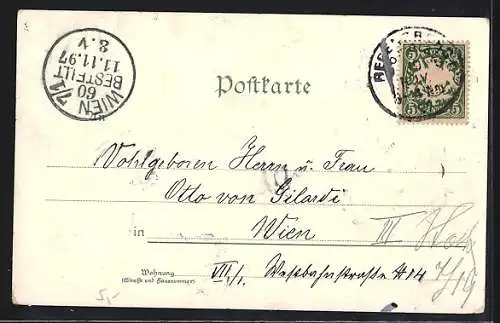 WIEN 7/1
60
BESTELLT
11.11.97
8.V
Postkarte
5 5
Wohlgeboren Herrn u. Frau
Otto von Gilardi
in Wien III
Wohnung
(Straße und Hausnummer)
VII/1. Westbahnstraße # 14
7/14
5,-